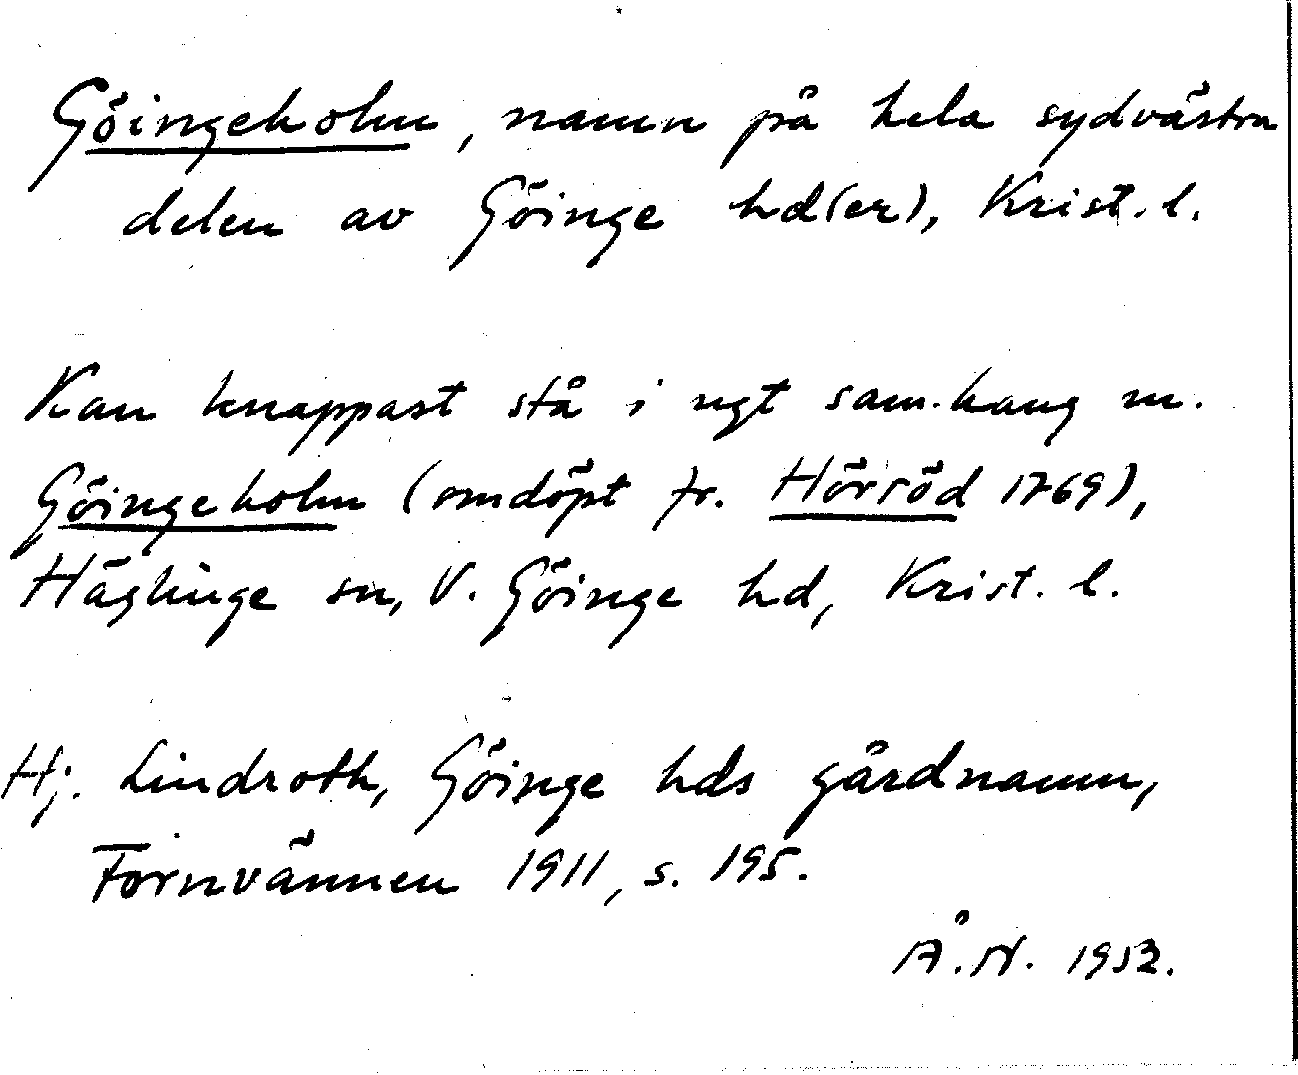 Göingeholm, namn på hela sydvästra
delen av Göinge hd(er), Krist. l.
Kan knappast stå i ngt sam.hang m.
Göingeholm (omdöpt fr. Hörröd 1769),
Häglinge sn, V. Göinge hd, Krist. l.
Hj. Lindroth, Göinge hds gårdnamn,
Fornvännen 1911, s. 195.
Å.N. 1953.